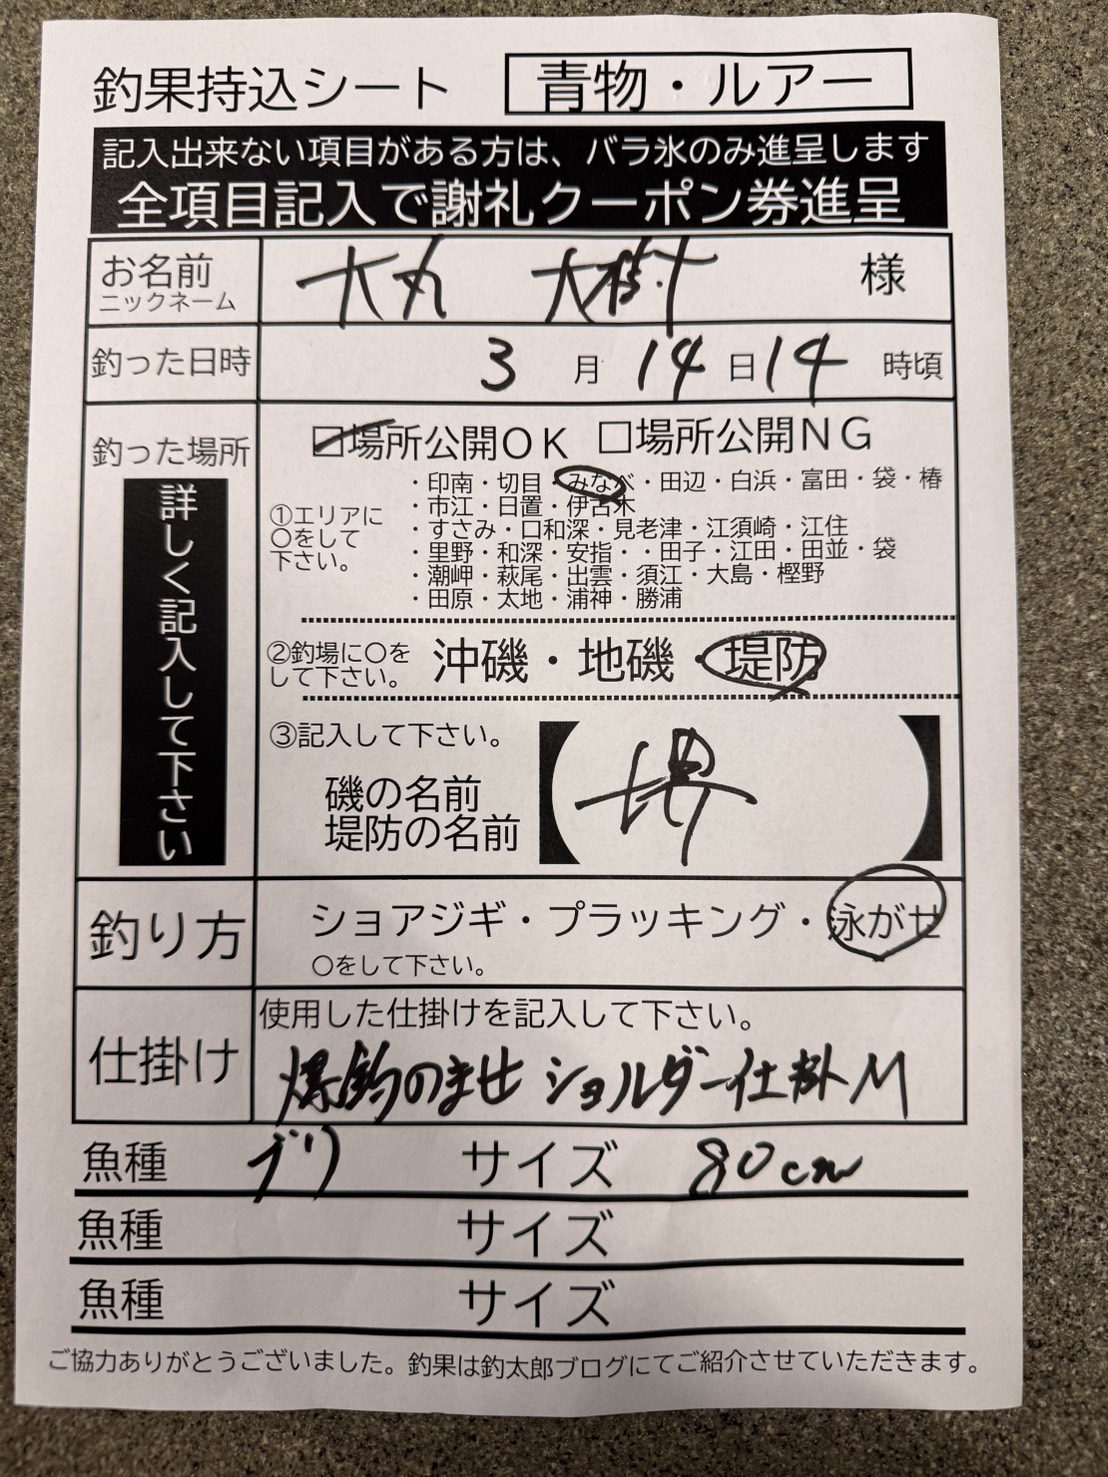 釣果持込シート 青物・ルアー
記入出来ない項目がある方は、バラ氷のみ進呈します
全項目記入で謝礼クーポン券進呈
お名前 大丸 大樹 様
ニックネーム
釣った日時 3 月 14 日 14 時頃
釣った場所 ☑場所公開OK □場所公開NG
詳しく記入して下さい
①エリアに
〇をして
下さい。
・印南・切目・みなべ・田辺・白浜・富田・袋・椿
・市江・日置・伊古木
・すさみ・口和深・見老津・江須崎・江住
・里野・和深・安指・・田子・江田・田並・袋
・潮岬・萩尾・出雲・須江・大島・樫野
・田原・太地・浦神・勝浦
②釣場に〇を
して下さい。
沖磯・地磯・堤防
③記入して下さい。
磯の名前
堤防の名前
【堺】
釣り方 ショアジギ・プラッキング・泳がせ
〇をして下さい。
仕掛け 使用した仕掛けを記入して下さい。
爆釣のませ ショルダー仕掛 M
魚種 ブリ サイズ 80cm
魚種 サイズ
魚種 サイズ
ご協力ありがとうございました。釣果は釣太郎ブログにてご紹介させていただきます。